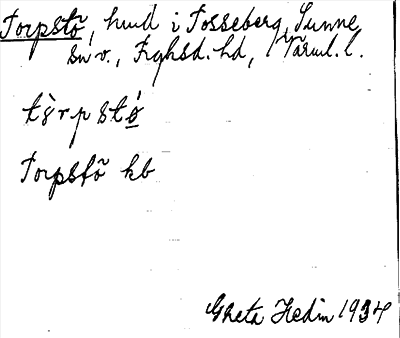 Torpstõ, hmd i Tosseberg, Sunne
sn v., Frghsd. hd, Värml. l.
tò̀rpstø̲
Torpstõ kb
Greta Hedin 1934